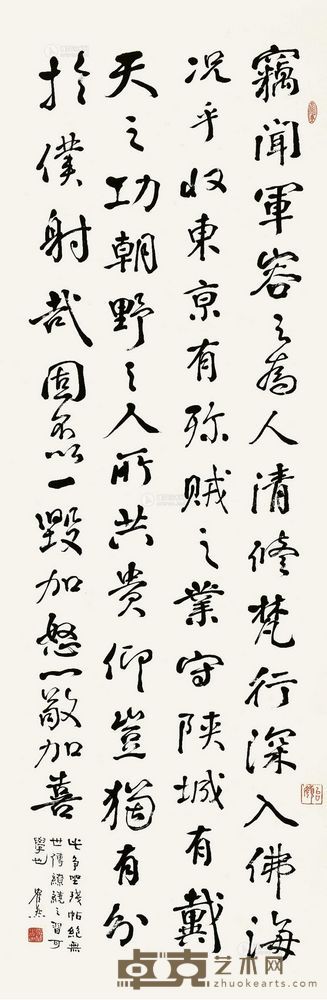 竊聞軍容之為人清修梵行深入佛海
况乎收東京有殄賊之業守陝城有戴
天之功朝野之人所共貴仰豈猶有分
於僕射哉固不以一毀加怒一敬加喜
此爭坐殘帖絶無
世傳繚繞之習可
學也
卓克艺术网